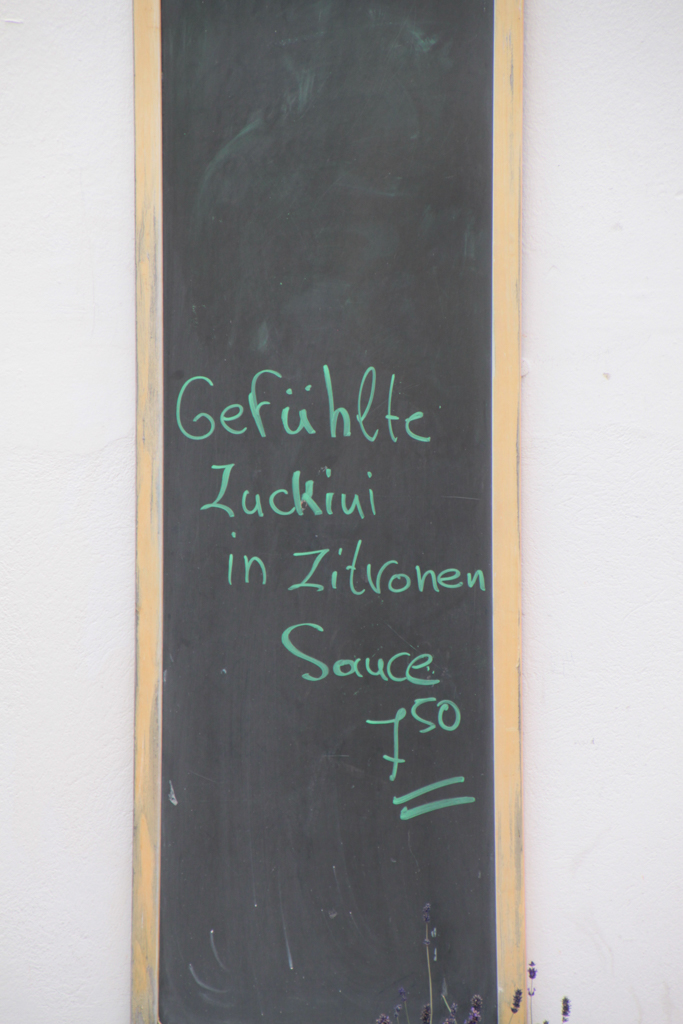 Gefühlte
Zuckini
in Zitronen
Sauce
7 50